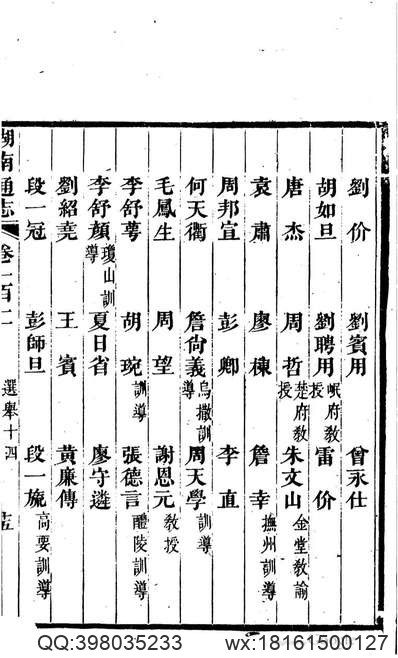 劉价 劉賓用 曾永仕
胡如旦 劉聘用岷府教授 雷价
唐杰 周哲楚府教授 朱文山金堂教諭
袁肅 廖棟 詹幸撫州訓導
周邦宜 彭卿 李直
何天衢 詹尙義烏撒訓導 周天學訓導
毛鳳生 周望 謝恩元教授
李舒萼 胡琬訓導 張德言醴陵訓導
李舒顏瓊山訓導 夏日省 廖守遴
劉紹堯 王賓 黃廉傳
段一冠 彭師旦 段一旒高要訓導
湖南通志 卷一百二 選舉十四
QQ:398035233 wx:18161500127